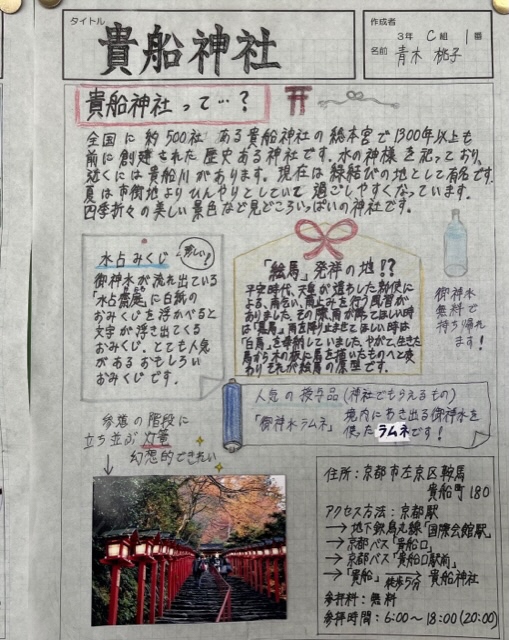 タイトル
貴船神社
作成者
3年 C組 1番
名前 青木 桃子
貴船神社って…?
全国に約500社ある貴船神社の総本宮で1300年以上も
前に創建された歴史ある神社です。水の神様を祀っており、
近くには貴船川があります。現在は縁結びの地として有名です。
夏は市街地よりひんやりとしていて過ごしやすくなっています。
四季折々の美しい景色など見どころいっぱいの神社です。
水占みくじ
珍しい!
御神水が流れ出ている
「水占齋庭」に白紙の
おみくじを浮かべると
文字が浮き出てくる
おみくじ。とても人気
があるおもしろい
おみくじです。
「絵馬」発祥の地!?
平安時代、天皇が遣わした勅使に
よる、雨乞い、雨止みを行う風習が
ありました。その際、雨が降ってほしい時は
「黒馬」、雨を降り止ませてほしい時は
「白馬」を奉納していました。やがて、生きた
馬から木の板に馬を描いたものへと変
わりそれが絵馬の原型です。
御神水
無料で
持ち帰れ
ます!
人気の授与品(神社でもらえるもの)
「御神水ラムネ」 境内にわき出る御神水を
使ったラムネです!
参道の階段に
立ち並ぶ灯篭
幻想的できれい
住所:京都市左京区鞍馬
貴船町180
アクセス方法:京都駅
→地下鉄烏丸線「国際会館駅」
→京都バス「貴船口」
→京都バス「貴船口駅前」
→「貴船」徒歩5分→貴船神社
参拝料:無料
参拝時間:6:00〜18:00(20:00)